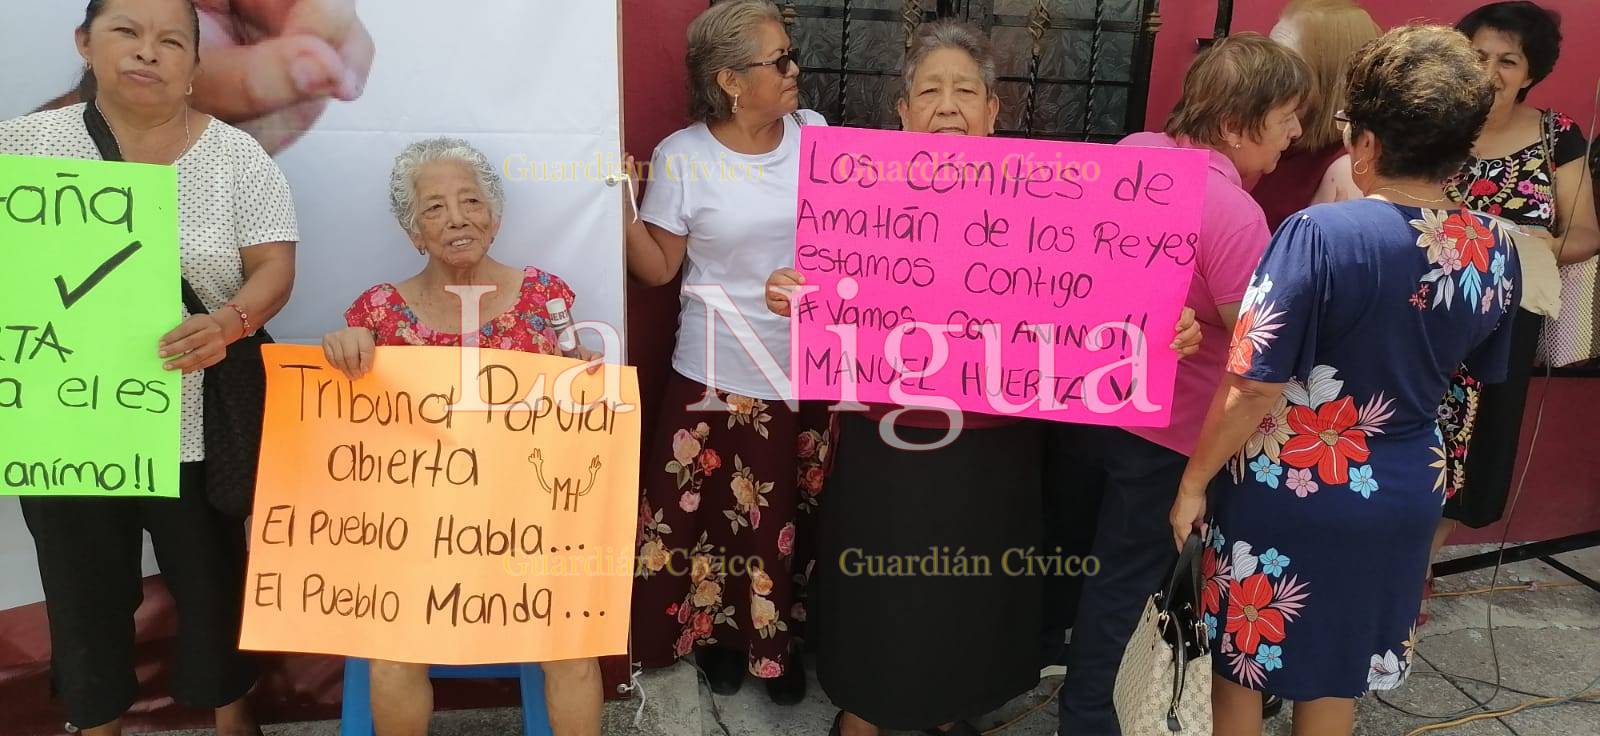 aña
✓
RTA
a el es
animo!!
Tribuna Popular
abierta
MH
El Pueblo Habla...
El Pueblo Manda...
Los Cómites de
Amatlán de los Reyes
estamos contigo
#Vamos con ANIMO!!
MANUEL HUERTA ✓
La Nigua
Guardián Cívico
Guardián Cívico
Guardián Cívico
Guardián Cívico